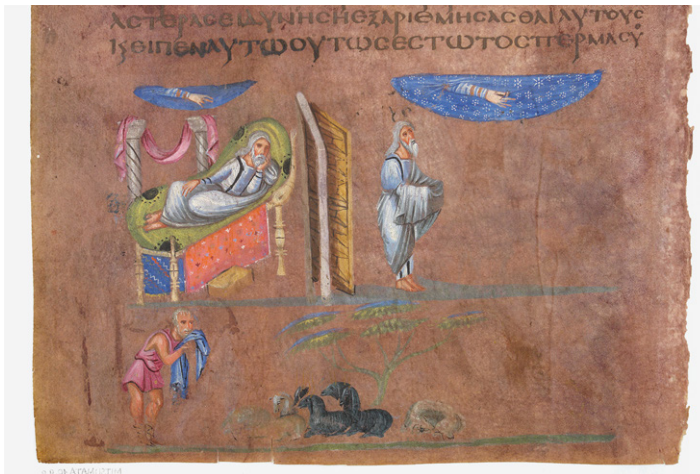 ΑϹΤΕΡΑϹΕΙΔΥΝΗϹΗΕΞΑΡΙΘΜΗϹΑϹΘΑΙΑΥΤΟΥϹ
ϏΕΙΠΕΝΑΥΤΩΟΥΤΩϹΕϹΤΩΤΟϹΠΕΡΜΑϹȢ